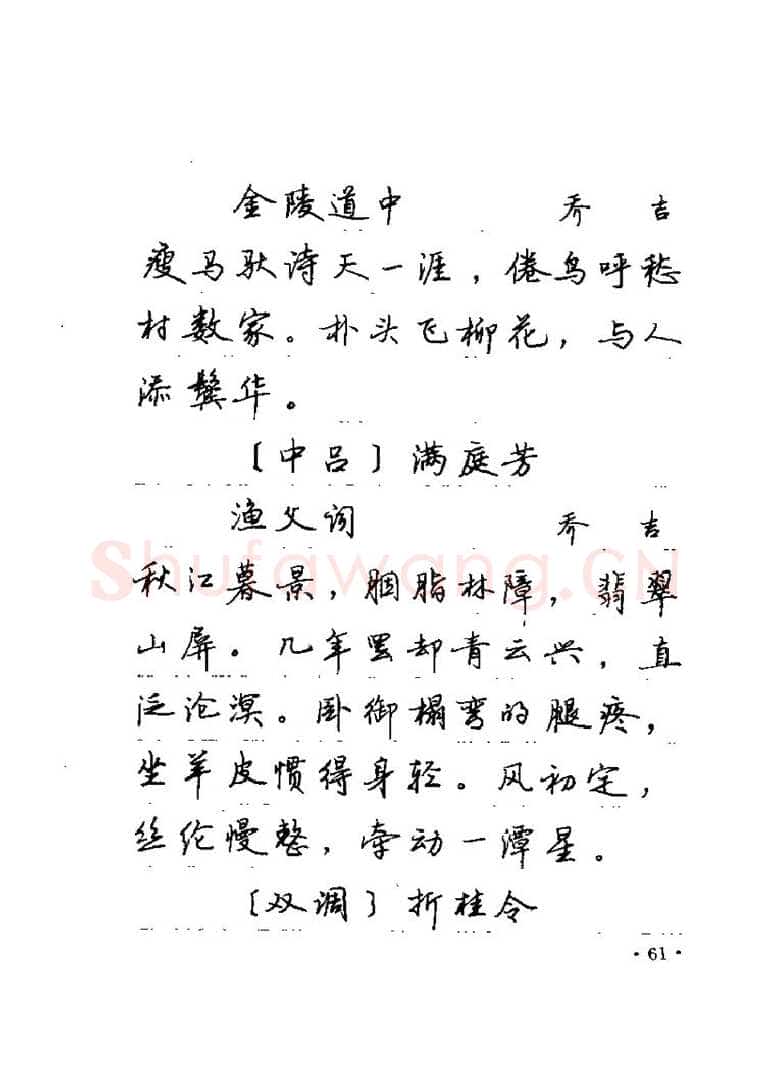 金陵道中 乔 吉
瘦马驮诗天一涯，倦鸟呼愁
村数家。扑头飞柳花，与人
添鬓华。
〔中吕〕满庭芳
渔父词 乔 吉
秋江暮景，胭脂林障，翡翠
山屏。几年罢却青云兴，直
泛沧溟。卧御榻弯的腿疼，
坐羊皮惯得身轻。风初定，
丝纶慢整，牵动一潭星。
〔双调〕折桂令
·61·
Shufawang.CN